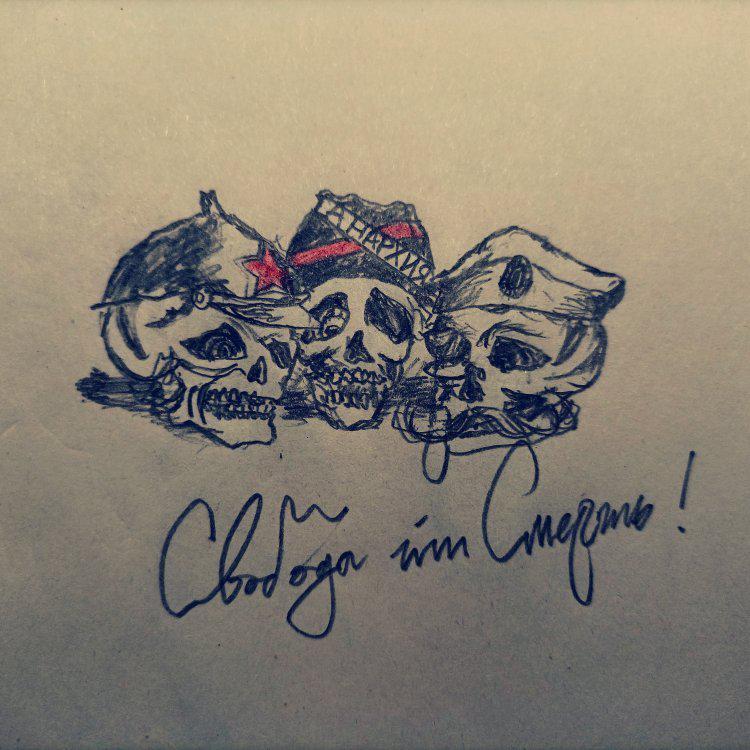 АНАРХИЯ
Свобода или Смерть!